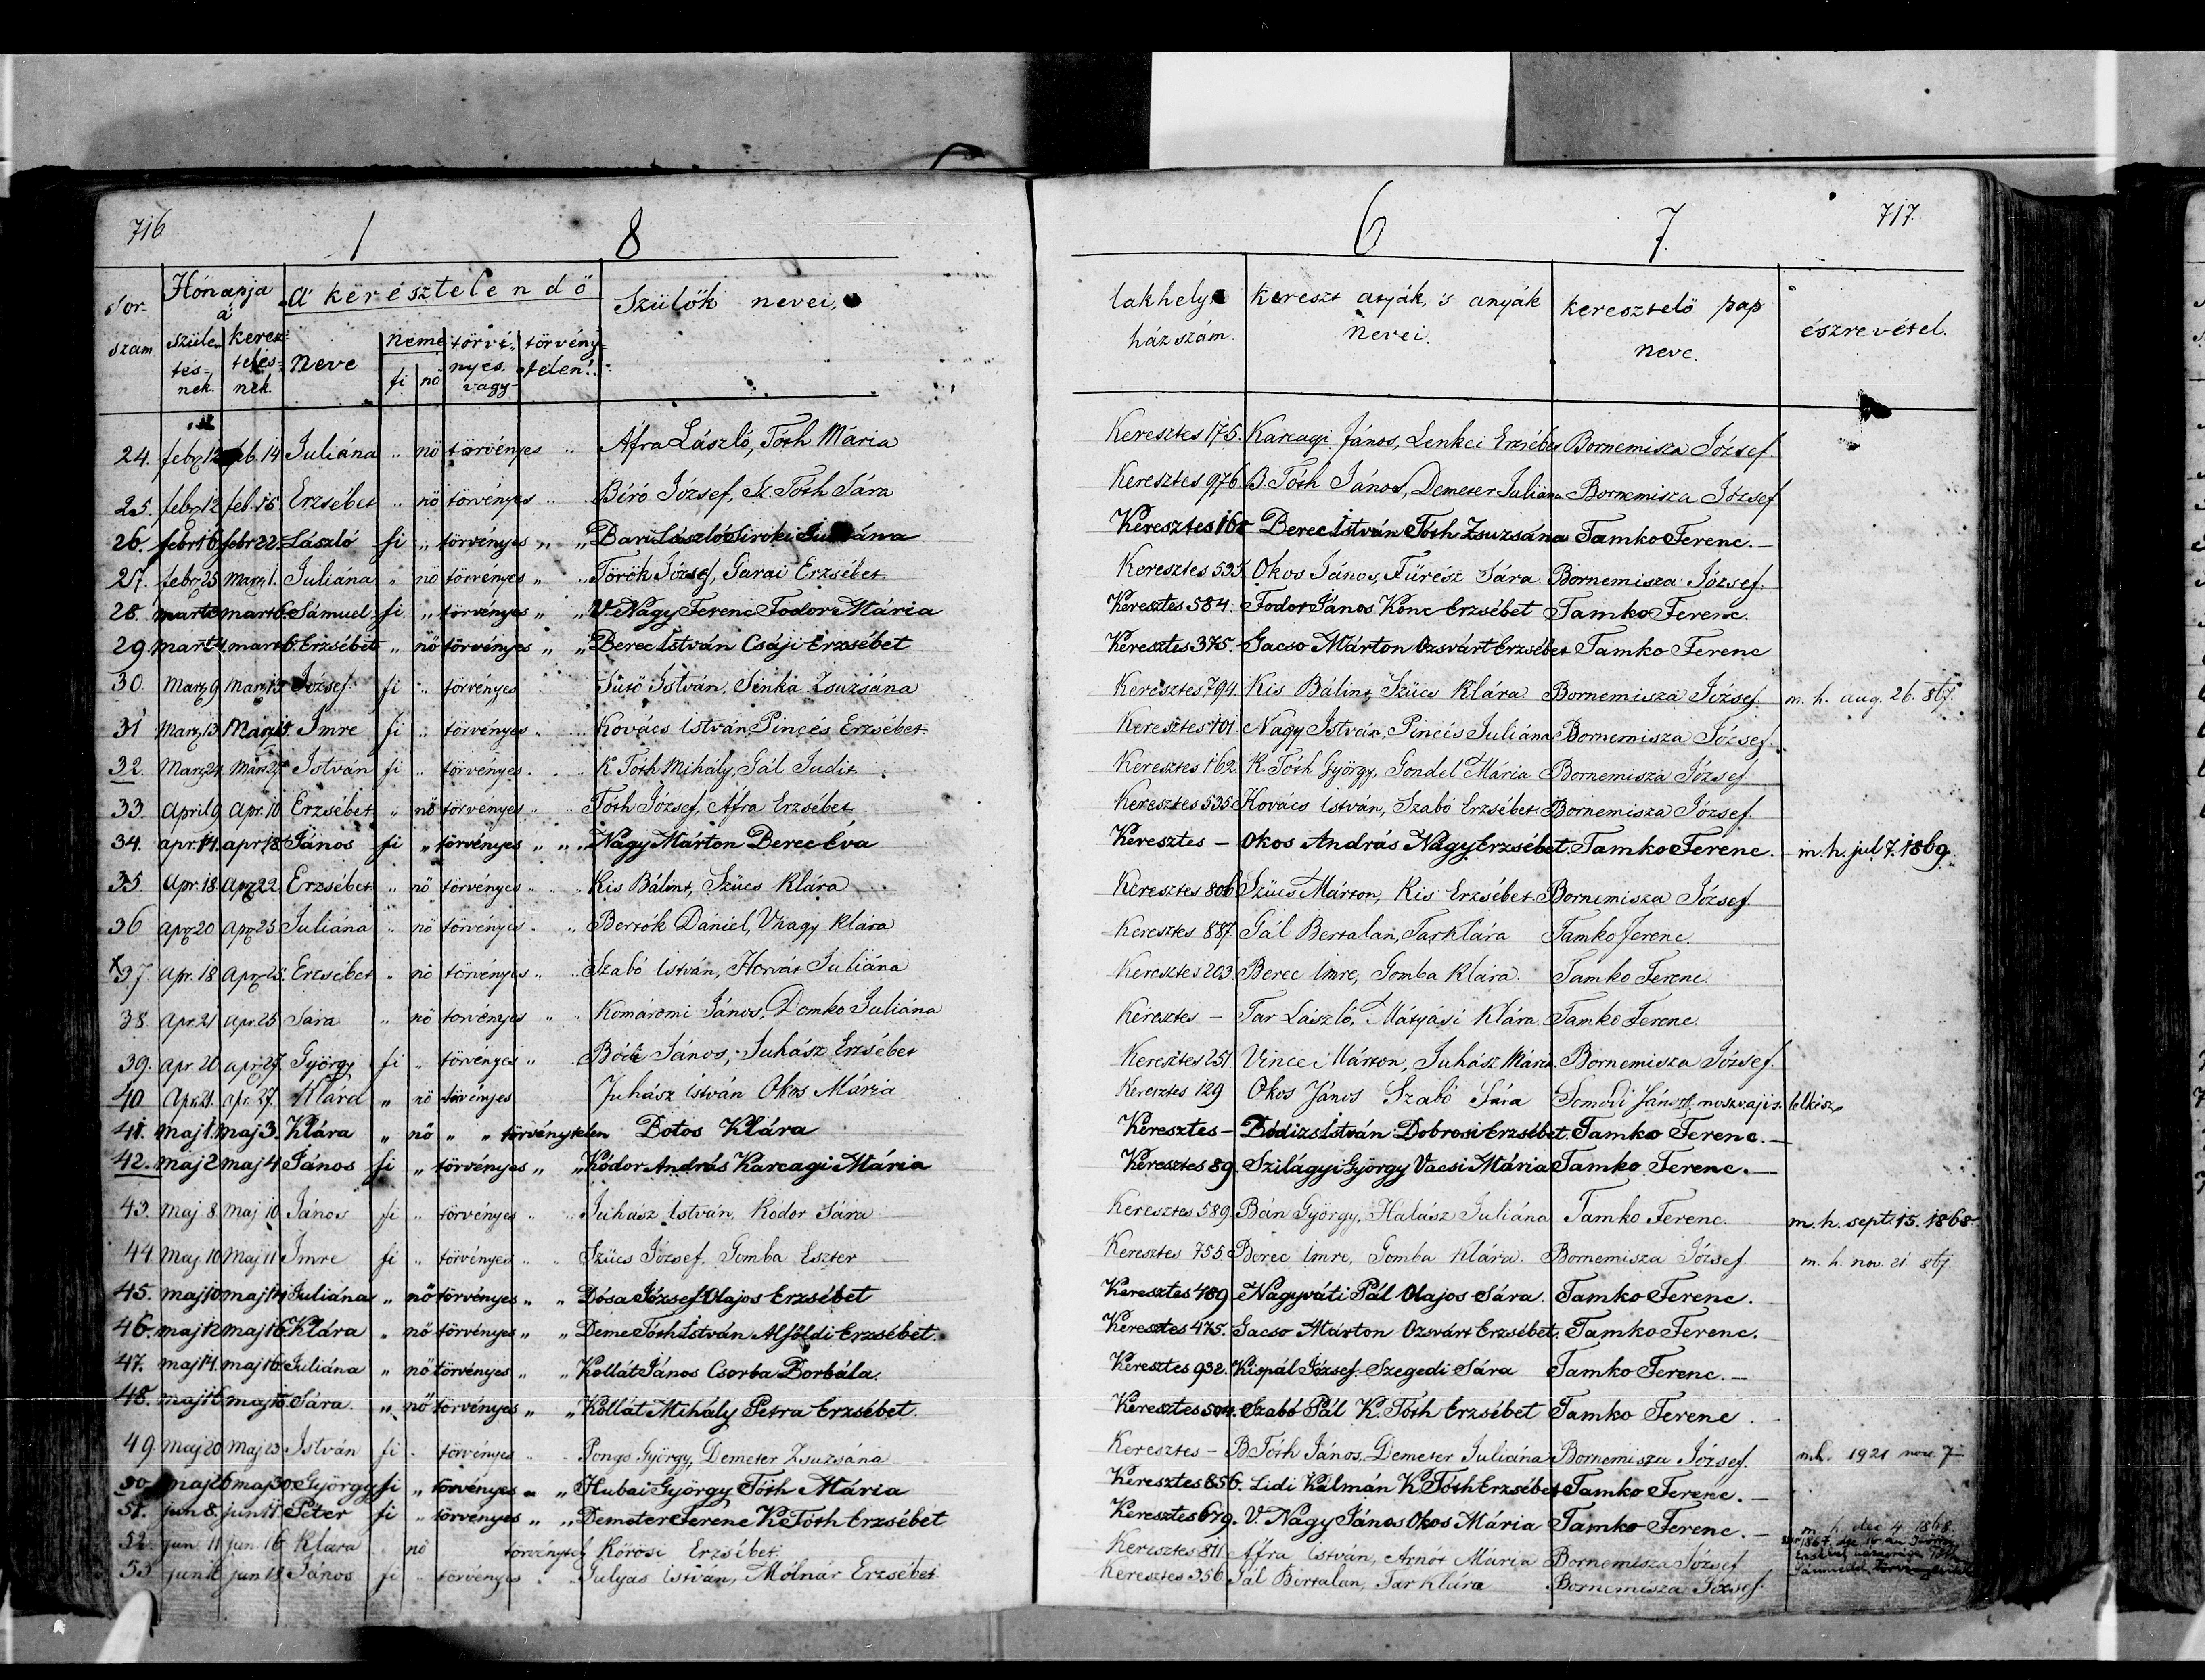 716
1
8
6
7.
717.
Sor-
szam
Hónapja
a'
szüle-
tés-
nek.
keresz-
telés-
nek.
A' keresztelendő
neve
neme
fi
nö
törvé-
nyes.
vagy
törvény-
telen!
Szülők nevei,
lakhelye
házszám.
kereszt atyák, 's anyák
nevei.
keresztelö pap
neve.
észrevétel.
24. febr 12 feb. 14 Juliána " nö törvényes " Áfra László, Tóth Mária Keresztes 175. Karcagi János, Lenkei Erzsébet Bornemisza József.
25. febr 12 feb. 15. Erzsébet " nö törvényes " Biró József, Sz. Tóth Sára Keresztes 976. B. Tóth János, Demeter Juliána Bornemisza József
26. febr 16 febr 22. László fi " törvényes " " Bari László Siroki Juliána Keresztes 168 Berec István Tóth Zsuzsána Tamko Ferenc. –
27. febr 25 Marz 1. Juliána " nö törvényes " " Török József, Garai Erzsébet Keresztes 535. Okos János, Fürész Sára Bornemisza József.
28. mart 3 mart 6. Sámuel fi " törvényes " " V. Nagy Ferenc Fodor Mária Keresztes 584. Fodor János Konc Erzsébet Tamko Ferenc.
29. mart 4. mart 6. Erzsébet " nö törvényes " " Berec István Csáji Erzsébet Keresztes 375. Gacso Márton Ozsvárt Erzsébet Tamko Ferenc
30. Marz 9 Marz 13 József fi " törvényes Sütö István, Senka Zsuzsána Keresztes 794 Kis Bálint, Szücs Klára Bornemisza József. m. h. aug. 26. 867.
31 Marz 13 Marz Imre fi " törvényes " Kovács István, Pincés Erzsébet Keresztes 101. Nagy István, Pincés Juliána Bornemisza József.
32. Marz 24 Marz 27 István fi " törvényes. K. Tóth Mihály, Gál Judit. Keresztes 162 K. Tóth György, Gondel Mária Bornemisza József
33. April 9 Apr. 10 Erzsébet " nö törvenyes " Tóth József, Áfra Erzsébet Keresztes 535 Kovács István, Szabó Erzsébet. Bornemisza József.
34. apr. 14. apr 18. János fi " törvényes " " Nagy Márton Berec Éva Keresztes – Okos András Nagy Erzsébet. Tamko Ferenc. m. h. jul 7. 1869.
35. Apr. 18. apr 22 Erzsébet " nö törvényes " Kis Bálint, Szücs Klára Keresztes 806 Szücs Márton, Kis Erzsébet Bornemisza József.
36 apr 20 apr 25 Juliána " nö törvényes " Bertók Dániel, Vnagy Klára Keresztes 887. Gál Bertalan, Tar Klára Tamko Ferenc.
x 37. apr. 18 apr 25. Erzsébet " nö törvényes " Szabó István, Horvát Juliána Keresztes 203. Berec Imre, Gomba Klára. Tamko Ferenc.
38. apr. 21 apr. 25 Sára " nö törvényes " Komáromi János, Domko Juliána Keresztes – Tar László, Mátyási Klára. Tamko Ferenc.
39. apr. 20 apr 27. György fi " törvényes " Bódi János, Juhász Erzsébet Keresztes 251. Vince Márton, Juhász Mária. Bornemisza József.
40 Apr. 21. apr. 27. Klára " nö törvényes Juhász István Okos Mária Keresztes 129 Okos János Szabó Sára Somodi János noszvaji s. lelkész
41. maj 1. maj 3. Klára " nö " " törvénytelen Botos Klára Keresztes – Bódizs István Dobrosi Erzsébet. Tamko Ferenc. –
42. maj 2 maj 4. János fi " törvényes " " Kódor András Karcagi Mária Keresztes 89. Szilágyi György Vacsi Mária Tamko Ferenc. –
43. Maj 8. Maj 10 János fi " törvényes " Juhász István, Kódor Sára Keresztes 589. Bán György, Halász Juliána Tamko Ferenc. m. h. sept. 15. 1868
44 Maj. 10 Maj 11 Imre fi " törvényes " Szücs József, Gomba Eszter Keresztes 755. Berec Imre, Gomba Klára. Bornemisza József m. h. nov. 21 867
45. maj 10 maj 14 Juliána " nö törvényes " " Dósa József Olajos Erzsébet Keresztes 489. Nagyváti Pál Olajos Sára. Tamko Ferenc.
46. maj 12 maj 16 Klára " nö törvényes " " Deme Tóth István Alföldi Erzsébet. Keresztes 475. Gacso Márton Ozsvárt Erzsébet. Tamko Ferenc.
47. maj 14. maj 16 Juliána " nö törvényes " " Kollát János Csorba Borbála. Keresztes 932. Kispál József Szegedi Sára Tamko Ferenc. –
48. maj 16. maj Sára. " nö törvényes " " Kollát Mihály Petra Erzsébet. Keresztes 504. Szabó Pál K. Tóth Erzsébet Tamko Ferenc.
49 Maj 20 Maj 23 István fi " törvényes " Pongo György, Demeter Zsuzsána Keresztes – B. Tóth János, Demeter Juliána Bornemisza József. m.h. 1921 nov. 7
50. maj 26 maj 30. György fi " törvényes " " Hubai György Tóth Mária Keresztes 856. Lidi Kálmán K. Tóth Erzsébet Tamko Ferenc. –
51. jun 8. jun 11. Péter fi " törvényes " " Demeter Ferenc K. Tóth Erzsébet Keresztes 679. V. Nagy János Okos Mária Tamko Ferenc. – m. h. dec 4. 1868
52. jun. 11 jun. 16 Klára nö törvénytelen Körösi Erzsébet Keresztes 811 Áfra István, Arnót Mária Bornemisza József
53 jun 16 jun 18 János fi " törvényes Gulyás István, Molnár Erzsébet Keresztes 356 Gál Bertalan, Tar Klára Bornemisza József.